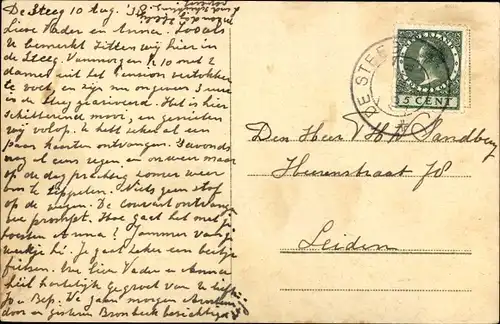 De Steeg 10 Aug. '38
Lieve Vader en Anna. Zooals
u bemerkt zitten wij hier in
de Steeg. Vanmorgen 10 met 2
dames uit het Pension vertrokken
te voet, en zijn nu ongeveer 3 uur
in de Steeg gearriveerd. Het is hier
schitterend mooi, en genieten
wij volop. U hebt zeker al een
paar kaarten ontvangen. 's avonds
nog al eens regen, en onweer maar
op de dag prachtig zomer weer
om te tippelen. Niets geen stof
op de wegen. De couvert ontvangen
we prompt. Hoe gaat het met je
hoesten Anna? Jammer van je
werkje hè. Je gaat zeker een beetje
fietsen. Nu lieve Vader en Anna
heel hartelijk gegroet van u liefh.
Jo en Bep. We gaan morgen Arnhem
door en gisteren Bronbeek bezichtigd
DE STEEG
NEDERLAND
5 CENT
Den Heer V.H.A. Sandberg
Heerenstraat 78
Leiden